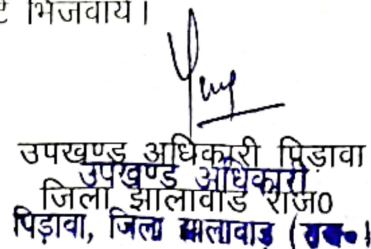 भिजवाये।
उपखण्ड अधिकारी पिड़ावा
उपखण्ड अधिकारी
जिला झालावाड राज0
पिड़ावा, जिला झालावाड़ (राज०)